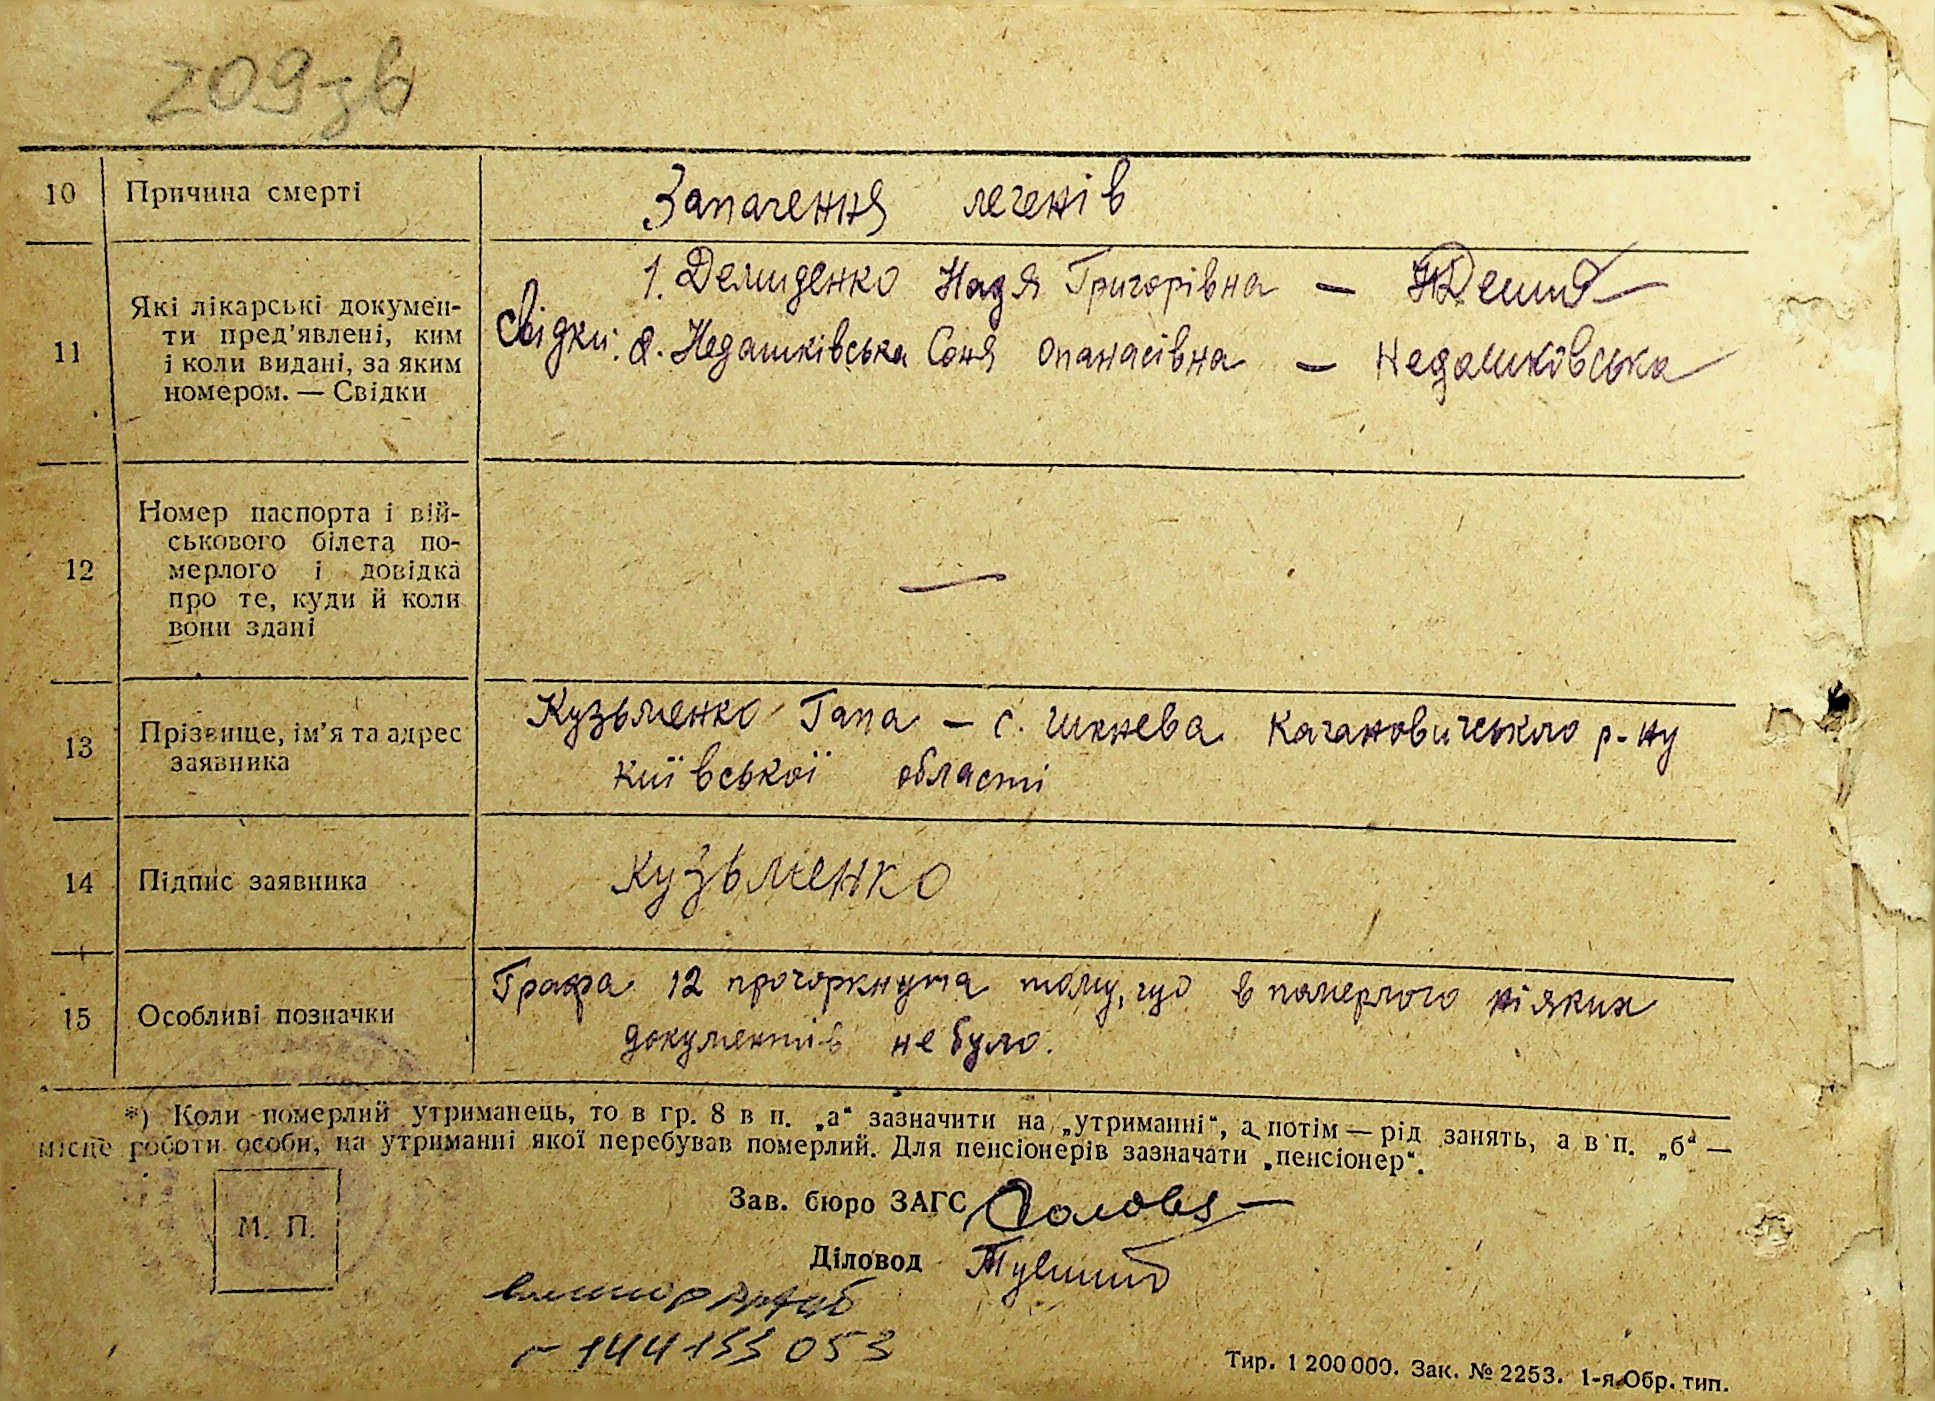 209-зв
10 Причина смерті Запалення легенів
11 Які лікарські докумен-
ти пред’явлені, ким
і коли видані, за яким
номером. — Свідки
1. Демиденко Надя Григорівна —
Свідки: 2. Недашківська Соня Опанасівна — Недашковська
12 Номер паспорта і вій-
ськового білета по-
мерлого і довідка
про те, куди й коли
вони здані
—
13 Прізвище, ім’я та адрес
заявника
Кузьменко Гапа — с. Шкнева Кагановичського р-ну
Київської області
14 Підпис заявника Кузьменко
15 Особливі позначки
Графа 12 прочоркнута тому, що в померлого ніяких
документів не було.
*) Коли померлий утриманець, то в гр. 8 в п. „а“ зазначити на „утриманні“, а потім — рід занять, а в п. „б“ —
місце роботи особи, на утриманні якої перебував померлий. Для пенсіонерів зазначати „пенсіонер“.
М. П.
Зав. бюро ЗАГС
Діловод
144133053
Тир. 1 200 000. Зак. № 2253. 1-я Обр. тип.